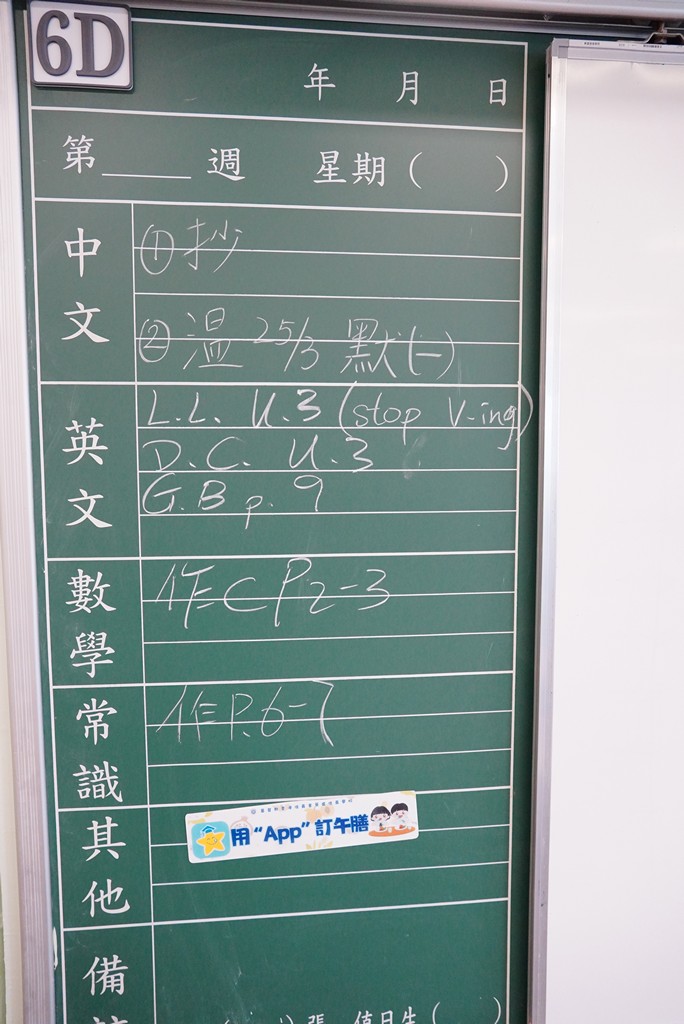 6D
年 月 日
第____週 星期( )
中文
①抄
②温 25/3 默(一)
英文
L.L. U.3 (stop V-ing)
D.C. U.3
G.B p. 9
數學
作C P2-3
常識
作P.6-7
其他
用“App”訂午膳
備
張 值日生( )